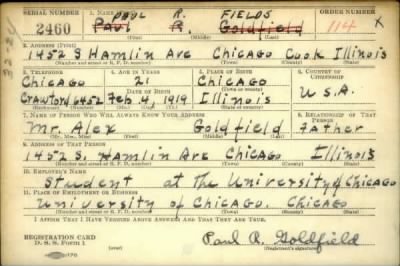 SERIAL NUMBER 1. NAME (Print) ORDER NUMBER
PAUL R. FIELDS
2460 Paul R Goldfield 114 X
(First) (Middle) (Last)
2. ADDRESS (Print)
1452 S Hamlin Ave Chicago Cook Illinois
(Number and street or R. F. D. number) (Town) (County) (State)
3. TELEPHONE 4. AGE IN YEARS 5. PLACE OF BIRTH 6. COUNTRY OF CITIZENSHIP
Chicago 21 Chicago
DATE OF BIRTH (Town or county)
Crawford 6452 Feb. 4, 1919 Illinois U.S.A.
(Exchange) (Number) (Mo.) (Day) (Yr.) (State or country)
7. NAME OF PERSON WHO WILL ALWAYS KNOW YOUR ADDRESS 8. RELATIONSHIP OF THAT PERSON
Mr Alex Goldfield Father
(Mr., Mrs., Miss) (First) (Middle) (Last)
9. ADDRESS OF THAT PERSON
1452 S. Hamlin Ave Chicago Illinois
(Number and street or R. F. D. number) (Town) (County) (State)
10. EMPLOYER'S NAME
Student at The University of Chicago
11. PLACE OF EMPLOYMENT OR BUSINESS
University of Chicago. Chicago
(Number and street or R. F. D. number) (Town) (County) (State)
I AFFIRM THAT I HAVE VERIFIED ABOVE ANSWERS AND THAT THEY ARE TRUE.
REGISTRATION CARD
D. S. S. Form 1
Paul R. Goldfield
(Registrant's signature)